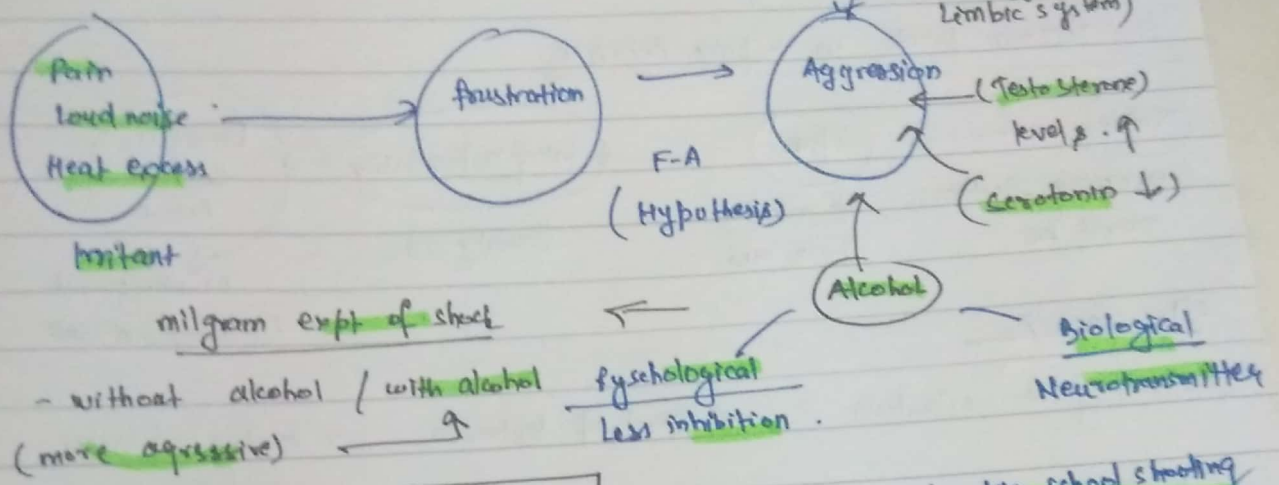 Limbic system)
Pain
loud noise
Heat excess
Irritant
frustration
F-A
(Hypothesis)
Aggression
(Testosterone)
levels ↑
(serotonin ↓)
Alcohol
milgram expt of shock
- without alcohol / with alcohol
(more agrsssive)
Pyschological
Less inhibition.
Biological
Neurotransmitter
school shooting